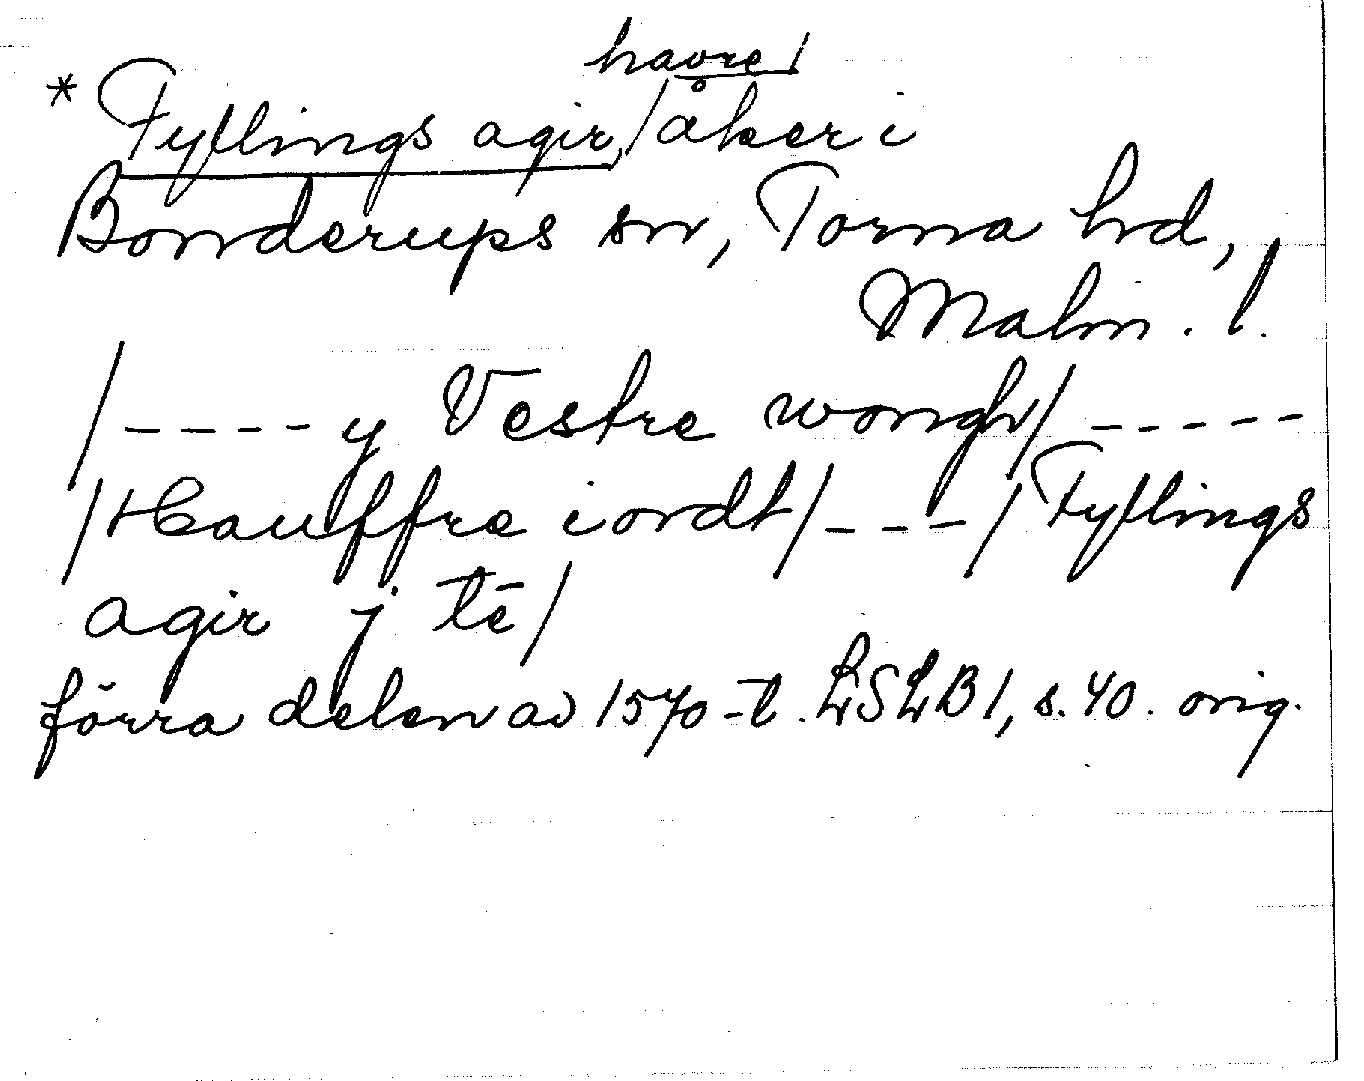 havre/
* Fyflings agir, /åker i
Bonderups sn, Torna hd,
Malm. l.
/---- y Vestre wongh/ -----
/Hauffre iordt/ --- / Fyflings
agir j tē/
förra delen av 1570-t. LSLB 1, s. 40. orig.